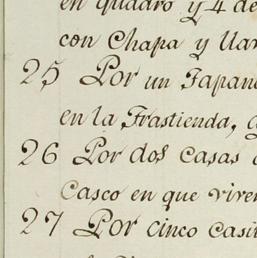 en quadro y 4 de
con Chapa y llav
25 Por un Tapanc
en la Trastienda,
26 Por dos casas
Casco en que viver
27 Por cinco casit